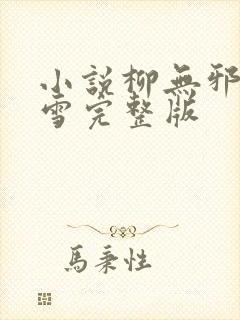 小說柳無邪
雪完整版
馬秉性